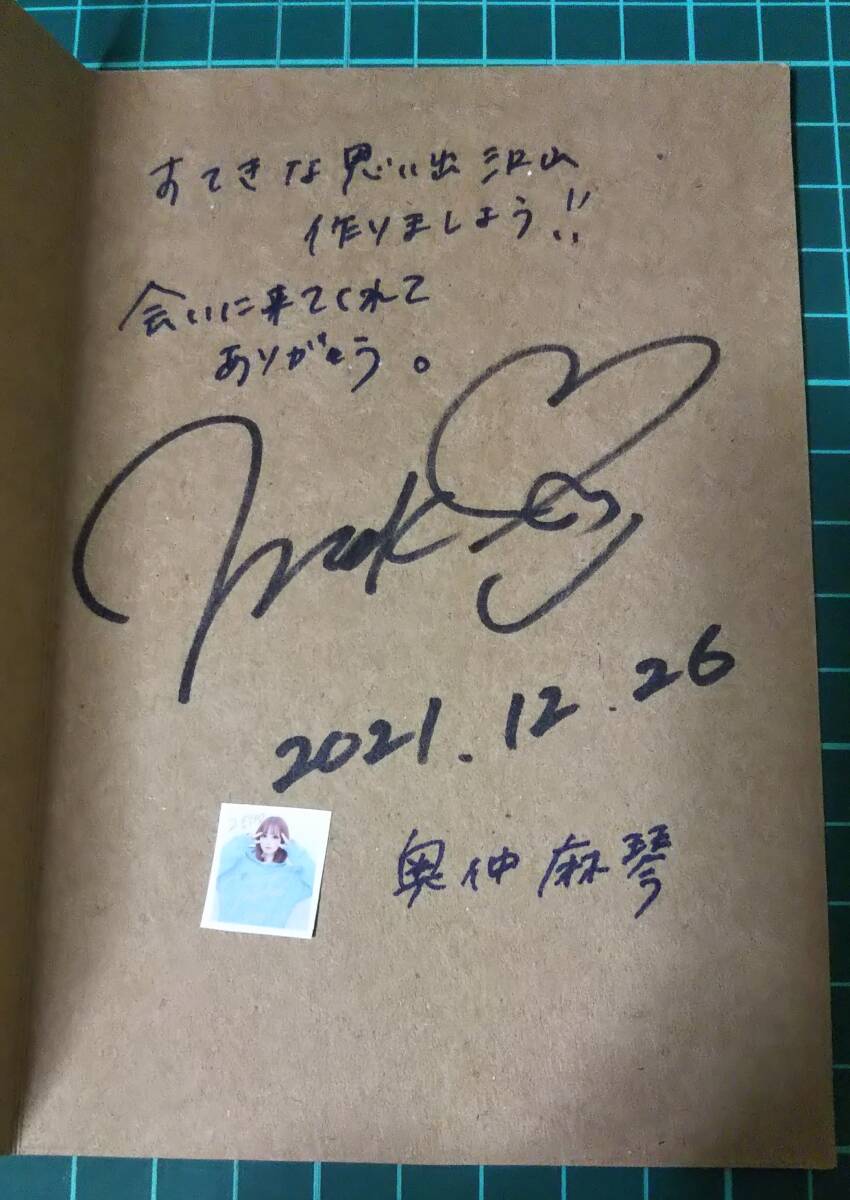 すてきな思い出沢山
作りましょう!!
会いに来てくれて
ありがとう。
2021.12.26
奥仲麻琴